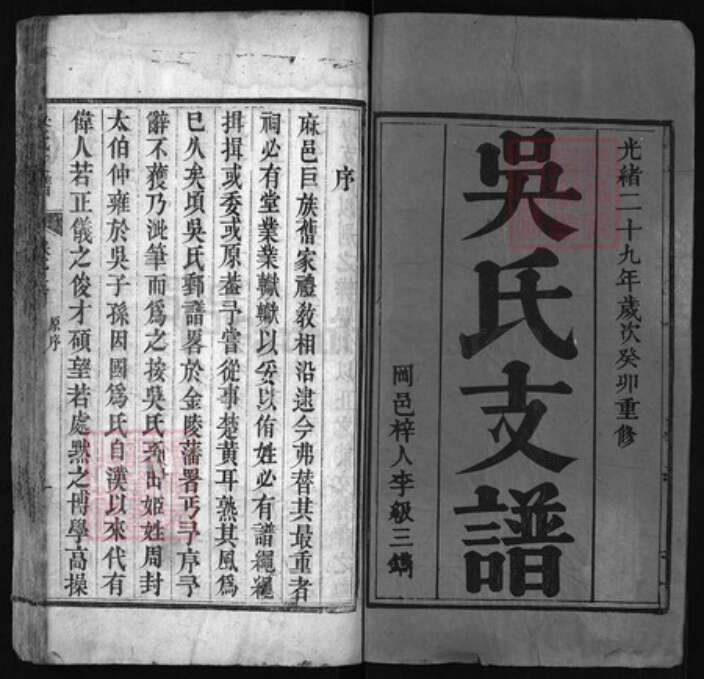 光緒二十九年歲次癸卯重修
吳氏支譜
岡邑梓人李級三鐫
序
麻邑巨族舊家禮敎相沿逮今弗替其最重者
祠必有堂業業轍轍以妥以侑姓必有譜繩繩
揖揖或委或原蓋予嘗從事楚黃耳熟其風爲
巳久矣頃吳氏郵譜畧於金陵藩署丐予序予
辭不獲乃泚筆而爲之按吳氏系出姬姓周封
太伯仲雍於吳子孫因國爲氏自漢以來代有
偉人若正儀之俊才碩望若處默之博學高操
原序